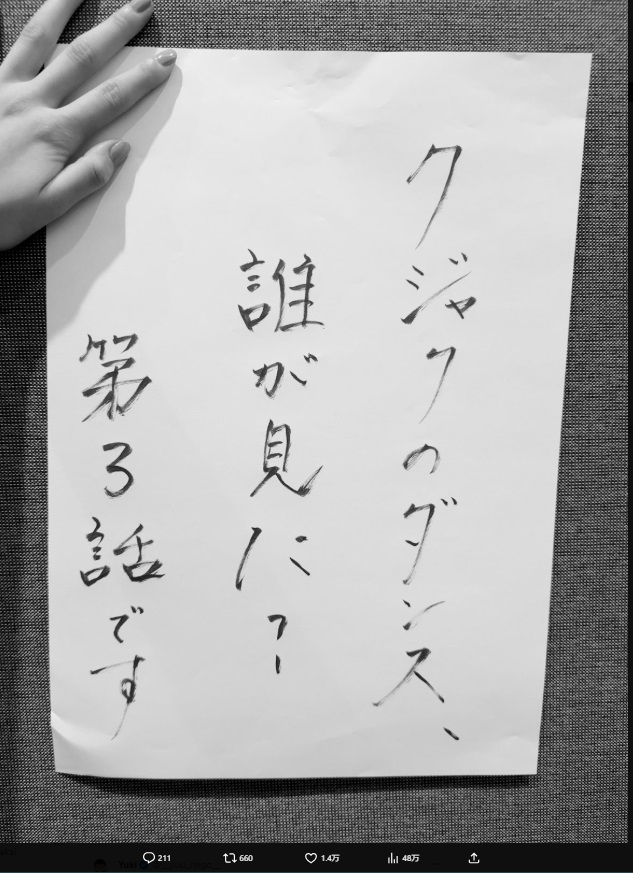 クジャクのダンス、
誰が見た?
第3話です
211 660 1.4万 48万